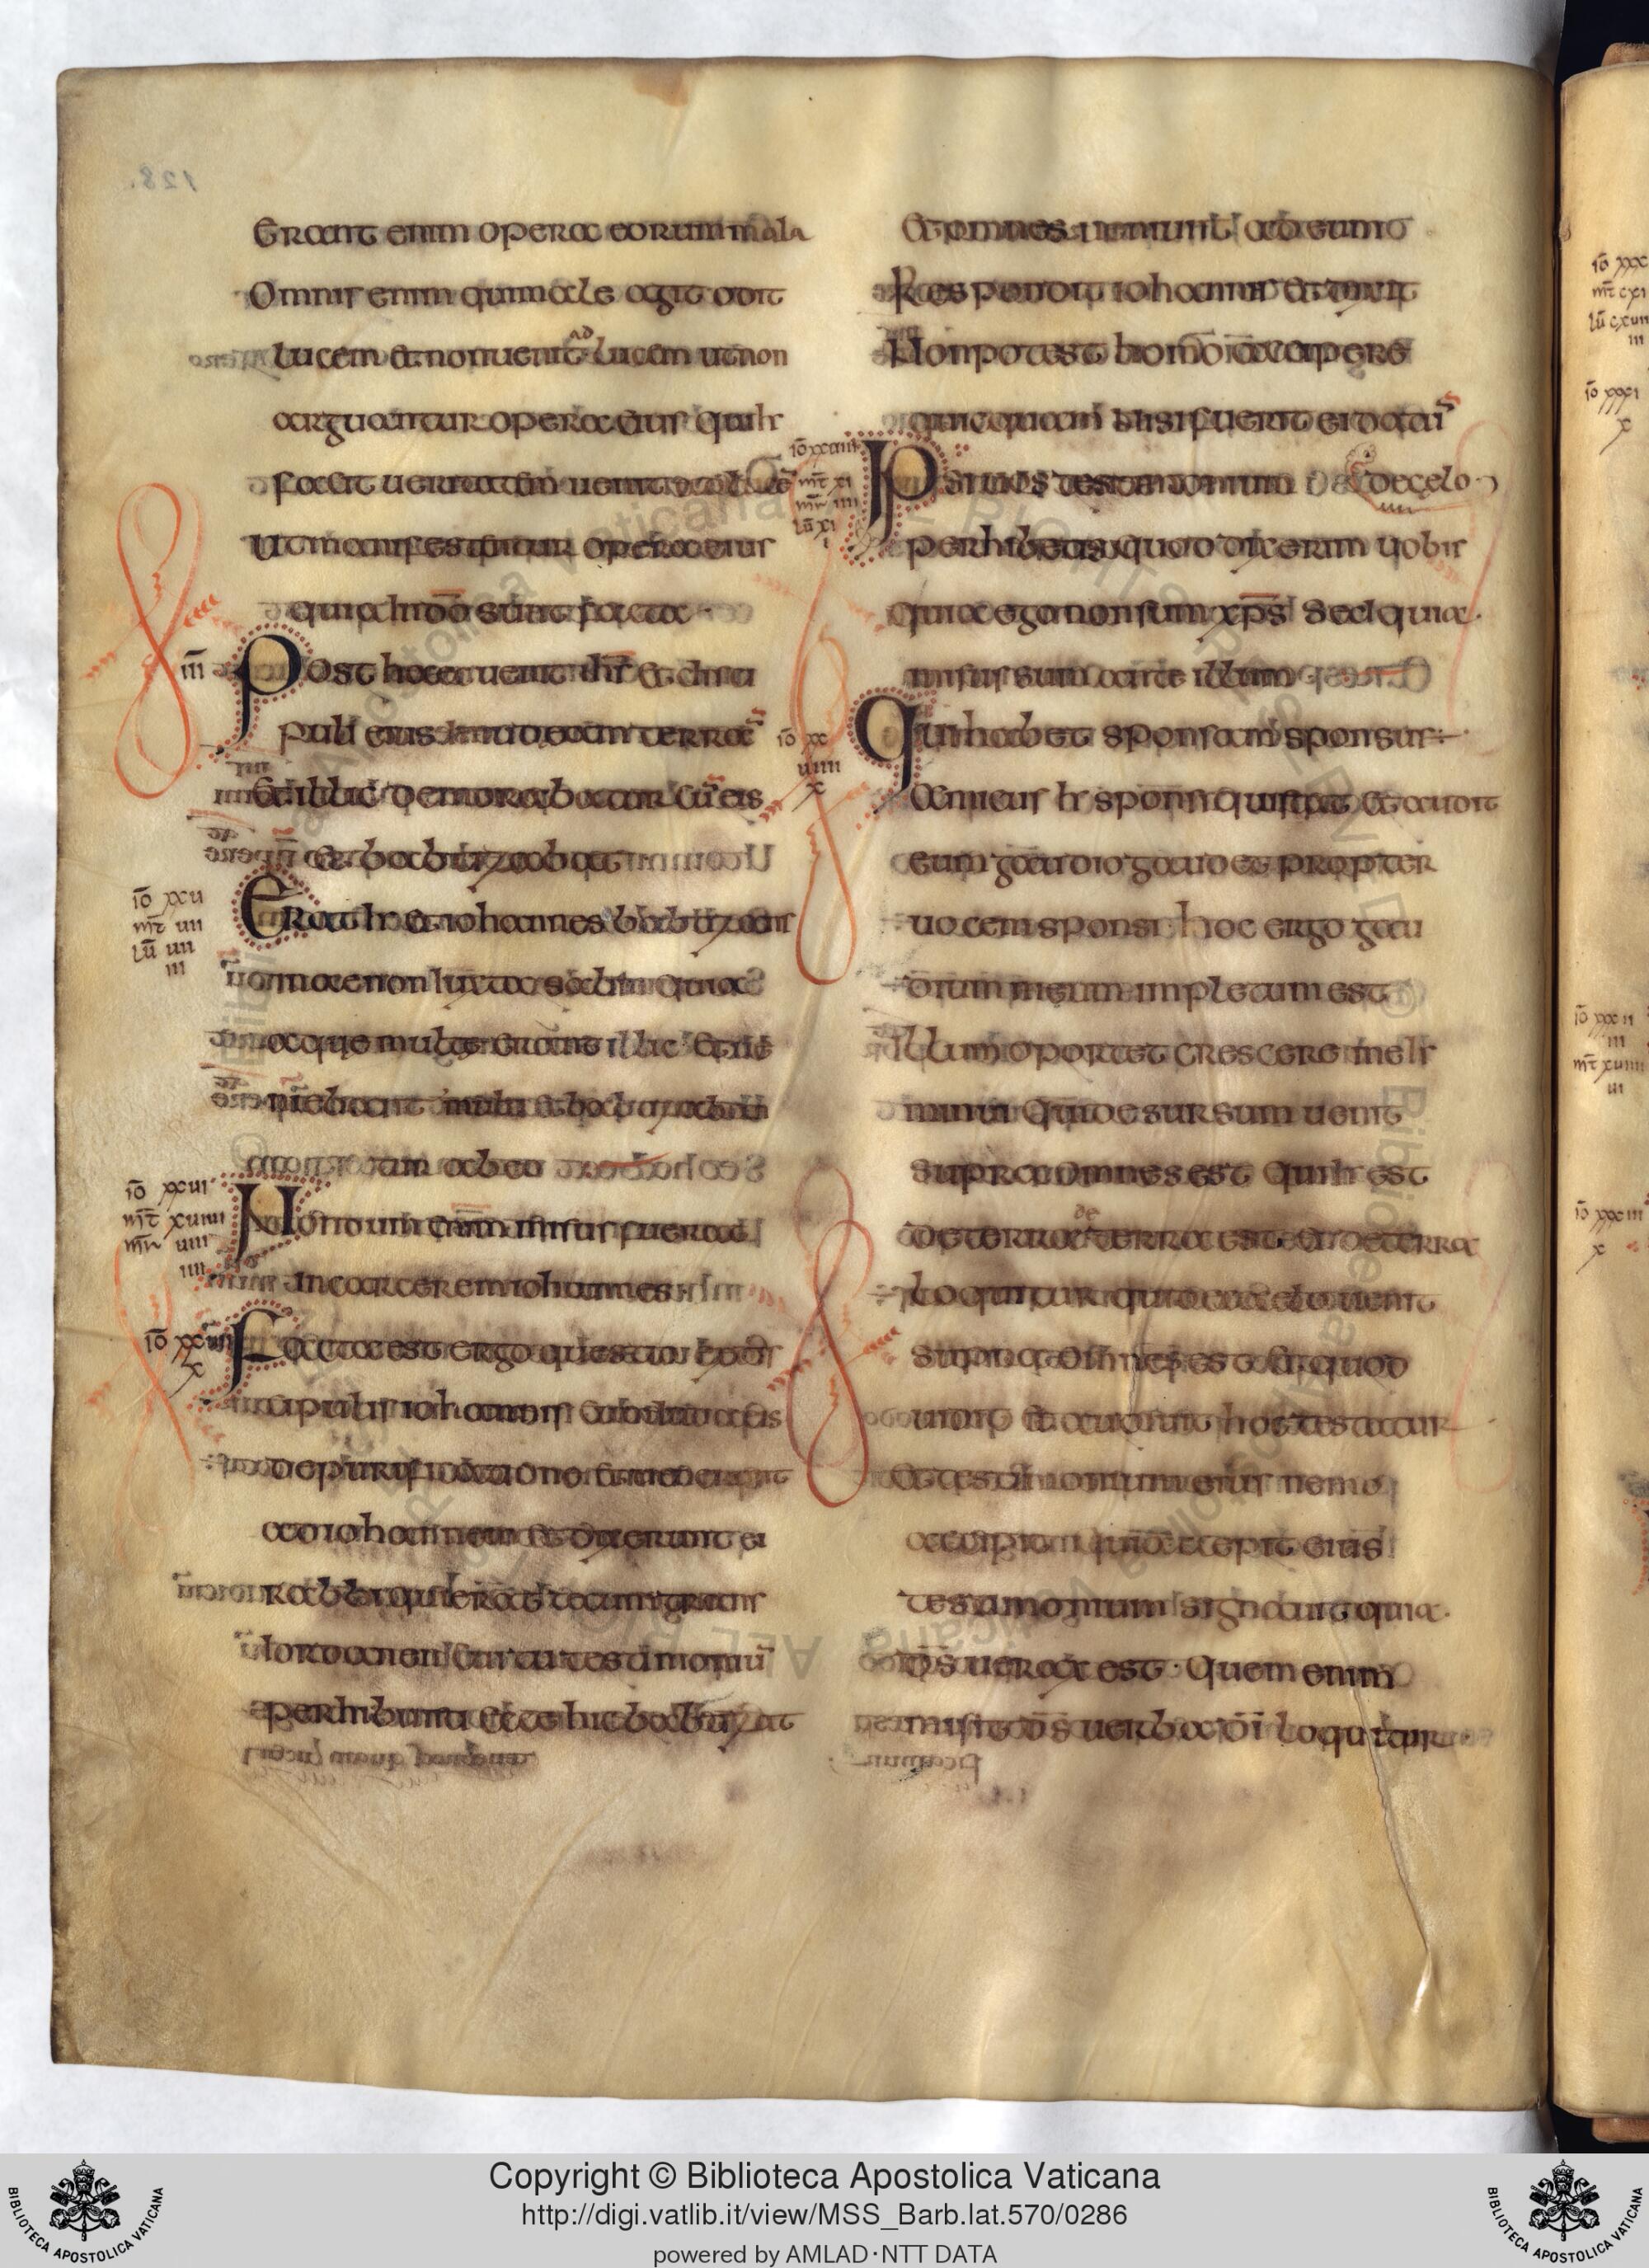 Erant enim opera eorum mala
Omnis enim qui male agit odit
lucem et non uenit ad lucem ut non
arguantur opera eius qui
facit ueritatem uenit ad
ut manifestentur opera eius
quia in do sunt facta
iii
Post haec uenit ihs et disci
puli eius in iudeam terrā
Et illic demorabatur cū eis
et babtizabat
iō xxu
mt uii
lū uii
iii
Erat et iohannes babtizans
in aenon iuxta salim quia
aquae multae erant illic Et
niebant et babtizaban
tur ab eo
iō xxui
mt xuiiii
mr uiii
iiii
Nondum enim misus fuerat
in carcerem iohannes
iō xxuii
x
Facta est ergo questio ex
cipulis iohannis cum iudaeis
de purificatione et uenerunt
ad iohannem et dixerunt ei
Rabbi qui erat tecum trans
iordanen cui tu testimoniū
perhibuisti ecce hic babtizat
Et omnes ueniunt ad eum
Respondit iohannis et dixit
Non potest homo accipere
quicquam nisi fuerit ei datū
de celo
iō xxuiii
mt xi
mr iiii
lū xi
i
Ipsi uos testimonium
perhibetis quod dixerim uobis
quia ego non sum xps Sed quia
misus sum ante illum
iō xx
uiiii
x
Qui habet sponsam sponsus
Amicus sponsi qui stat et audit
eum gaudio gaudet propter
uocem sponsi hoc ergo gau
dium meum impletum est
illum oportet crescere me
minui Qui desursum uenit
supra omnes est Qui est
de terra de terra est et de terra
loquitur qui de caelo uenit
supra omnes est Et quod
uidit et audiuit hoc testatur
Et testimonium eius nemo
accipit qui accepit eius
testimonium signauit quia
ds uerax est Quem enim
misit ds uerba di loquitur
Copyright © Biblioteca Apostolica Vaticana
http://digi.vatlib.it/view/MSS_Barb.lat.570/0286
powered by AMLAD·NTT DATA
BIBLIOTECA APOSTOLICA VATICANA
BIBLIOTECA APOSTOLICA VATICANA